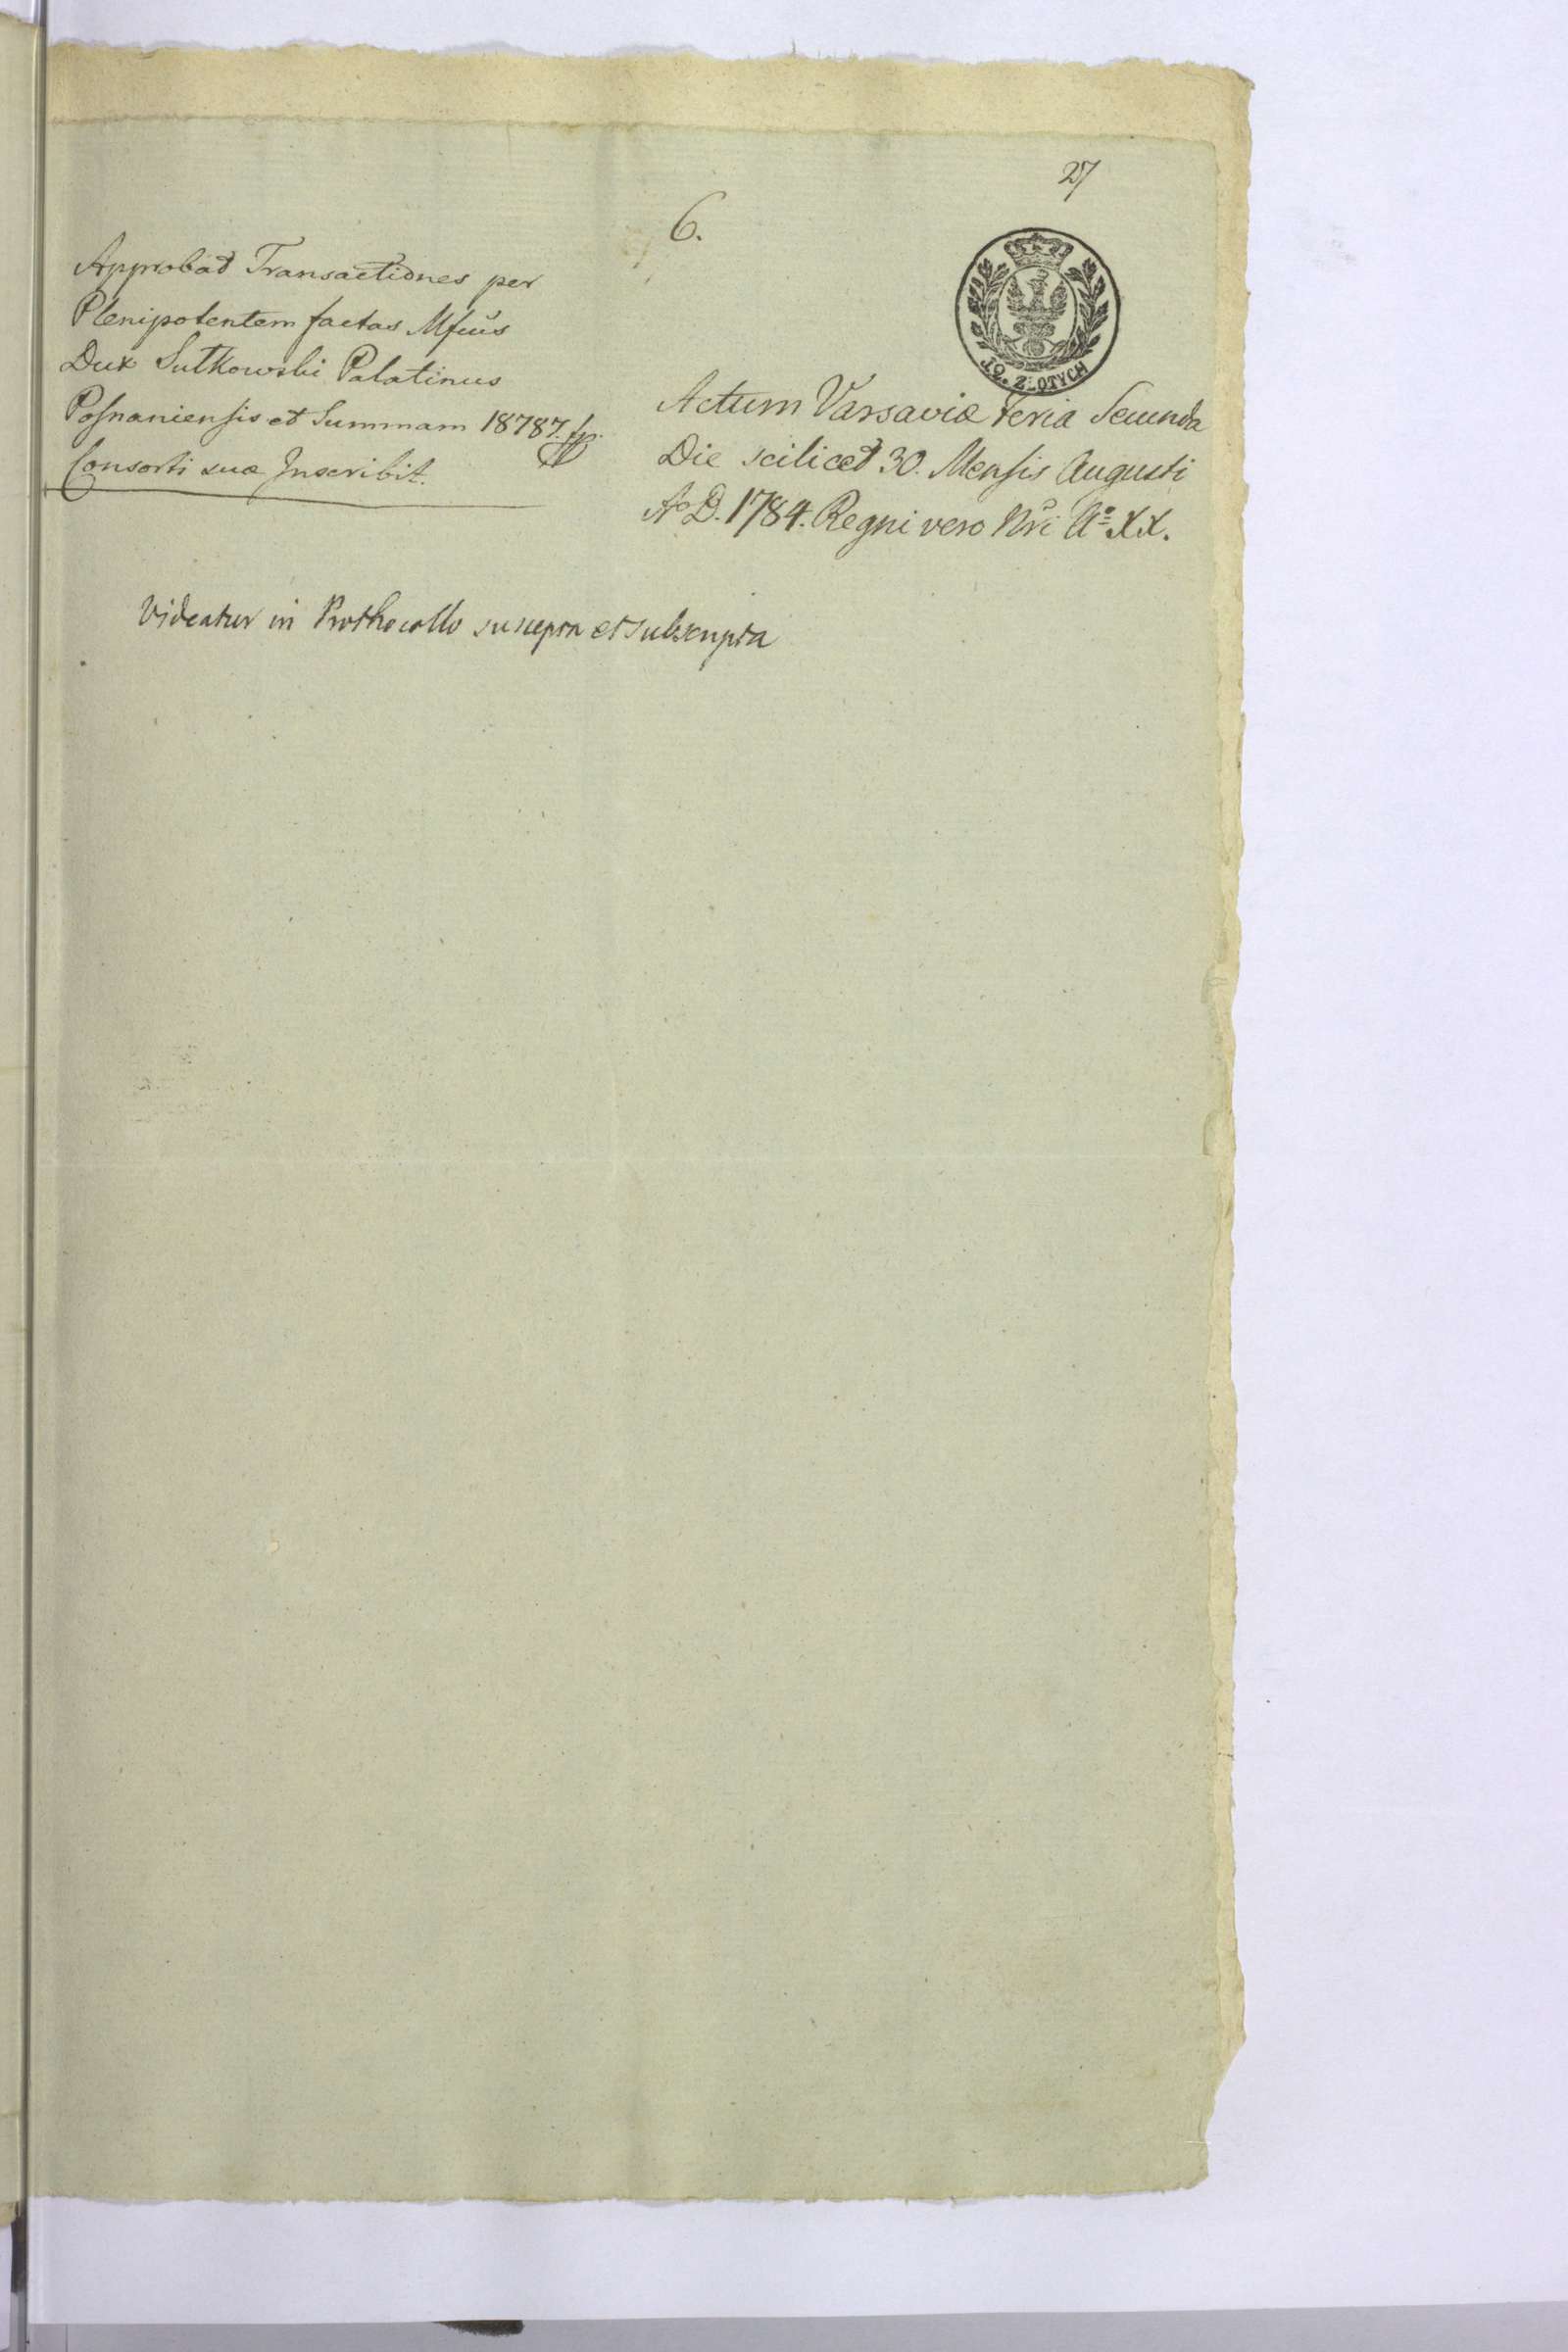 27
6.
10. ZŁOTYCH
Approbat Transactiones per
Plenipotentem factas Mfcus
Dux Sulkowski Palatinus
Posnaniensis et Summam 18787. fp.
Consorti suæ Inscribit.
Actum Varsaviæ Feria Secunda
Die scilicet 30. Mensis Augusti
Aº D. 1784. Regni vero Nri Aº XX.
Videatur in Prothocollo suscepta et subscripta